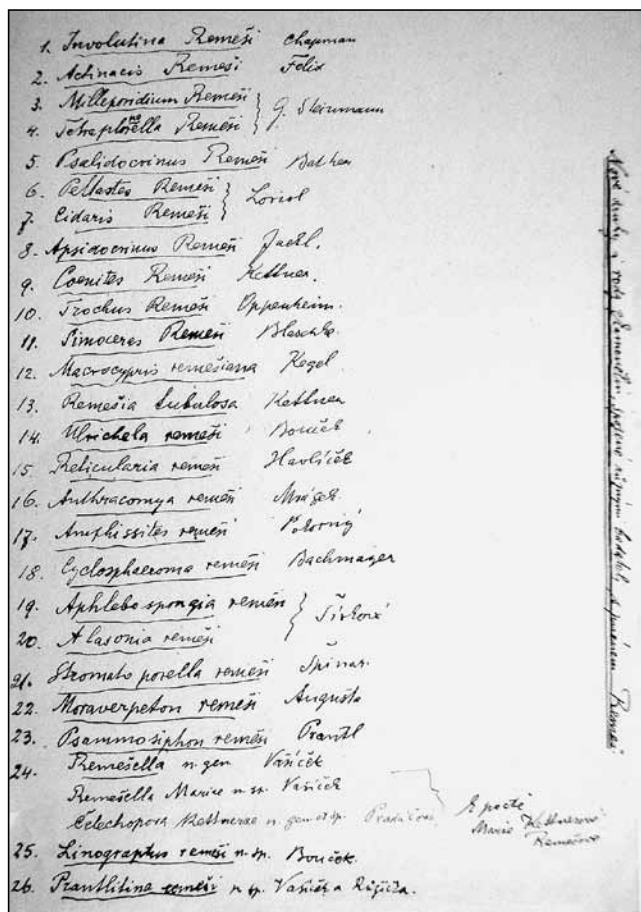 1. Involutina Remeši Chapman
2. Actinacis Remeši Felix
3. Milleporidium Remeši
4. Remeši } G. Steinmann
5. Psalidocrinus Remeši Bather
6. Peltastes Remeši
7. Cidaris Remeši } Loriol
8. Apsidocrinus Remeši Jaekl.
9. Coenites Remeši Kettner.
10. Trochus Remeši Oppenheim.
11. Simoceras Remeši Blaschke.
12. Macrocypris remešiana Kegel.
13. Remešia tubulosa Kettner
14. Ulrichela remeši Bouček
15. Reticularia remeši Havlíček
16. Anthracomya remeši
17. Amphissites remeši Pokorný
18. Cyclosphaeroma remeši Bachmayer
19. Aphlebospongia remeši
20. Alasonia remeši }
21. Stromatoporella remeši Špinar.
22. Moraverpeton remeši Augusta
23. Psammosiphon remeši Prantl
24. Remešella n. gen Vašíček
Remešella Mariae n. sp. Vašíček
Čelechopora Kettnerae n. gen et sp. } K poctě
Marie Kettnerové
Remešové
25. Linograptus remeši n. sp. Bouček.
26. Prantlitina remeši n. sp. Vašíček a Růžička.
Nové druhy a rody zkamenělin, spojené různými badateli s jménem Remeš